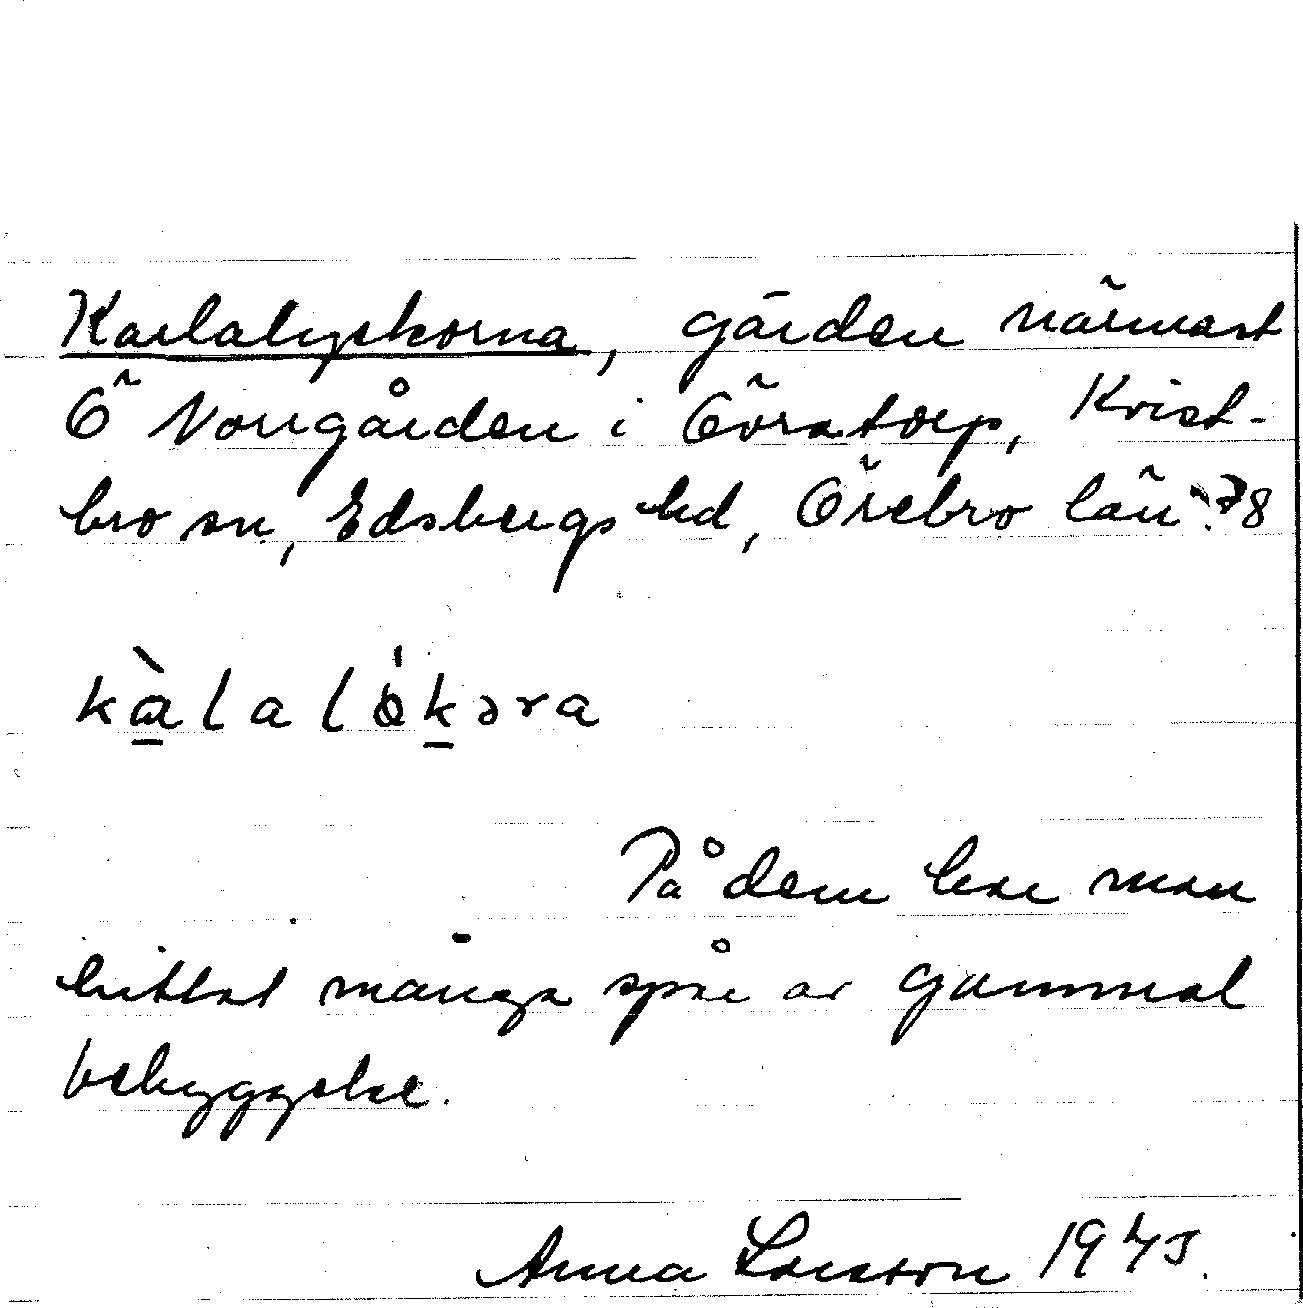 Karlalyckorna, gärden närmast
Ö Norrgården i Övratorp, Kvist-
bro sn, Edsbergs hd, Örebro län. 78
kàlalökəra
På dem har man
hittat många spår av gammal
bebyggelse.
Anna Larsson 1945.